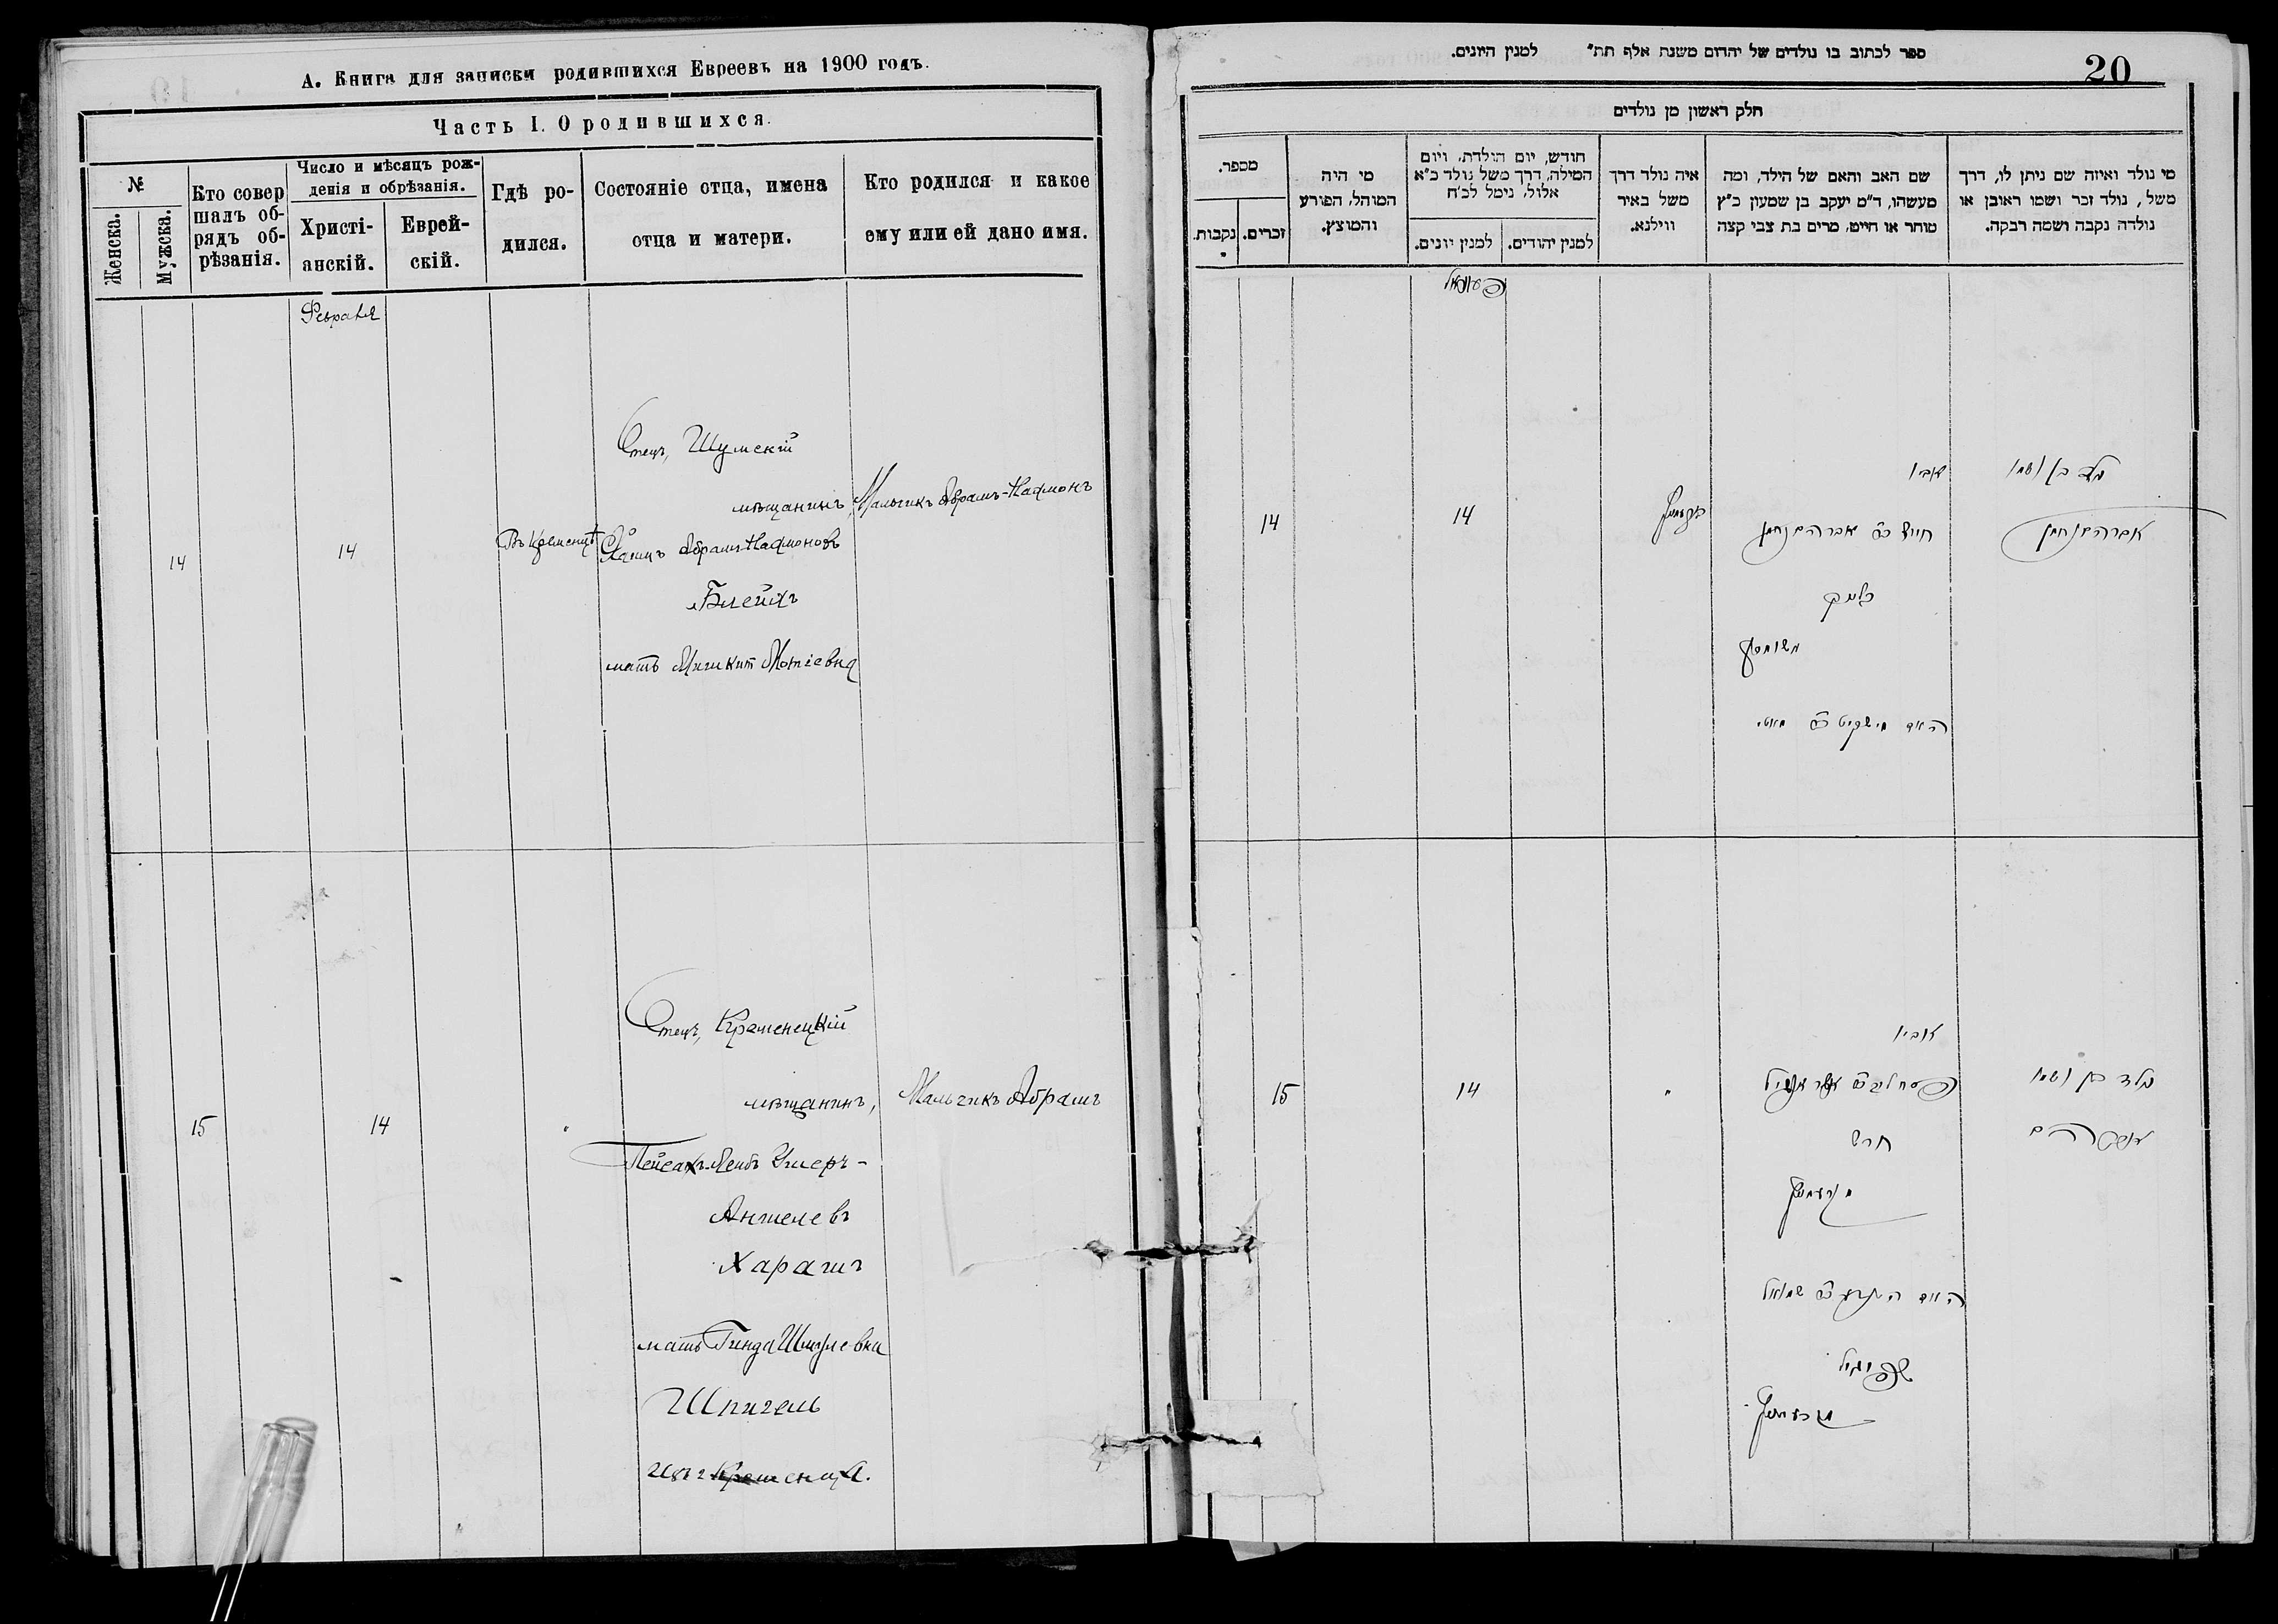 А. Книга для записки родившихся Евреевъ на 1900 годъ.
Часть I. О родившихся.
№
Женска.
Мужска.
Кто совер
шалъ об-
рядъ об-
рѣзанія.
Число и мѣсяцъ рож-
денія и обрѣзанія.
Христі-
анскій.
Еврей-
скій.
Гдѣ ро-
дился.
Состояніе отца, имена
отца и матери.
Кто родился и какое
ему или ей дано имя.
Февраля
14
14
Въ Кременцѣ
Отецъ, Шумскій
мѣщанинъ,
Абрамъ-Нахмоновъ
Блейхъ
мать Мотіевна
Мальчикъ Абрамъ-Нахмонъ
15
14
"
Отецъ, Кременецкій
мѣщанинъ,
Пейсахъ-Лейбъ Ушеръ-
Аншелевъ
Харашъ
мать Гинда Шмулевна
Шпигель
изъ г Кременца.
Мальчикъ Абрамъ
ספר לכתוב בו נולדים של יהדום משנת אלף תת״ למנין היונים.
20
חלק ראשון מן נולדים
מספר.
נקבות.
זכרים.
מי היה
המוהל, הפורע
והמוצץ.
חודש, יום תולדת, ויום
המילה, דרך משל נולד כ״א
אלול, נימל לכ״ח
למנין יונים.
למנין יהודים.
איה נולד דרך
משל באיר
ווילנא.
שם האב והאם של הילד, ומה
מעשהו, ד״מ יעקב בן שמעון כ״ץ
סוחר או חייט, מרים בת צבי קצה
מי נולד ואיזה שם ניתן לו, דרך
משל, נולד זכר ושמו ראובן או
נולדה נקבה ושמה רבקה.
14
14
אביו
אברהם נחמן
בלייך
נולד בן ושמו
אברהם נחמן
15
14
"
אביו
חרש
שמואל
שפיגיל
נולד בן ושמו
אברהם